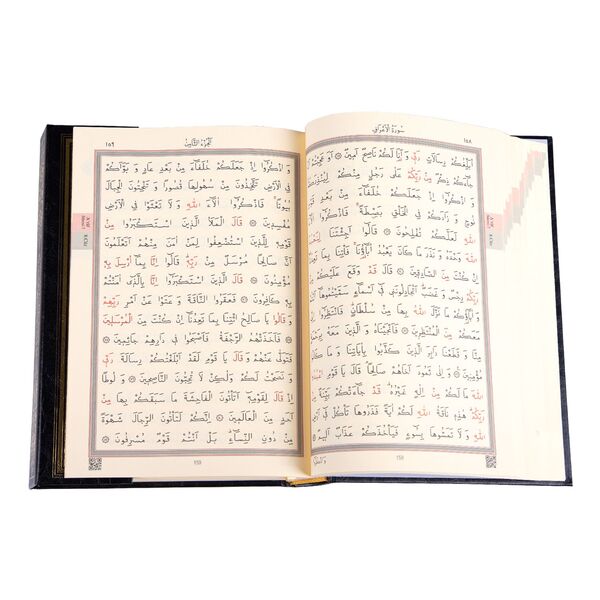 ١٥٨
سُورَةُ الْاَعْرَافِ
اُبَلِّغُكُمْ رِسَالَاتِ رَبّ۪ي وَاَنَا۬ لَكُمْ نَاصِحٌ اَم۪ينٌ اَوَعَجِبْتُمْ اَنْ
جَاءَكُمْ ذِكْرٌ مِنْ رَبِّكُمْ عَلٰى رَجُلٍ مِنْكُمْ لِيُنْذِرَكُمْ
وَاذْكُرُوا اِذْ جَعَلَكُمْ خُلَفَاءَ مِنْ بَعْدِ قَوْمِ
نُوحٍ وَزَادَكُمْ فِي الْخَلْقِ بَصْۣطَةً فَاذْكُرُوا اٰلَاءَ
اللّٰهِ لَعَلَّكُمْ تُفْلِحُونَ قَالُوا اَجِئْتَنَا لِنَعْبُدَ
اللّٰهَ وَحْدَهُ وَنَذَرَ مَا كَانَ يَعْبُدُ اٰبَاؤُنَا فَأْتِنَا بِمَا تَعِدُنَا
اِنْ كُنْتَ مِنَ الصَّادِق۪ينَ قَالَ قَدْ وَقَعَ عَلَيْكُمْ مِنْ
رَبِّكُمْ رِجْسٌ وَغَضَبٌ اَتُجَادِلُونَن۪ي ف۪ي اَسْمَاءٍ سَمَّيْتُمُوهَا اَنْتُمْ
وَاٰبَاؤُكُمْ مَا نَزَّلَ اللّٰهُ بِهَا مِنْ سُلْطَانٍ فَانْتَظِرُوا اِنّ۪ي
مَعَكُمْ مِنَ الْمُنْتَظِر۪ينَ فَاَنْجَيْنَاهُ وَالَّذ۪ينَ مَعَهُ بِرَحْمَةٍ
مِنَّا وَقَطَعْنَا دَابِرَ الَّذ۪ينَ كَذَّبُوا بِاٰيَاتِنَا وَمَا كَانُوا
مُؤْمِن۪ينَ وَاِلٰى ثَمُودَ اَخَاهُمْ صَالِحًا قَالَ يَا قَوْمِ اعْبُدُوا
اللّٰهَ مَا لَكُمْ مِنْ اِلٰهٍ غَيْرُهُ قَدْ جَاءَتْكُمْ بَيِّنَةٌ مِنْ
رَبِّكُمْ هٰذِه۪ نَاقَةُ اللّٰهِ لَكُمْ اٰيَةً فَذَرُوهَا تَأْكُلْ ف۪ي اَرْضِ
اللّٰهِ وَلَا تَمَسُّوهَا بِسُوءٍ فَيَأْخُذَكُمْ عَذَابٌ اَل۪يمٌ
158
اَلْجُزْءُ الثَّامِنُ
١٥٩
وَاذْكُرُوا اِذْ جَعَلَكُمْ خُلَفَاءَ مِنْ بَعْدِ عَادٍ وَبَوَّاَكُمْ
فِي الْاَرْضِ تَتَّخِذُونَ مِنْ سُهُولِهَا قُصُورًا وَتَنْحِتُونَ الْجِبَالَ
بُيُوتًا فَاذْكُرُوا اٰلَاءَ اللّٰهِ وَلَا تَعْثَوْا فِي الْاَرْضِ
مُفْسِد۪ينَ قَالَ الْمَلَاُ الَّذ۪ينَ اسْتَكْبَرُوا مِنْ
قَوْمِه۪ لِلَّذ۪ينَ اسْتُضْعِفُوا لِمَنْ اٰمَنَ مِنْهُمْ اَتَعْلَمُونَ
اَنَّ صَالِحًا مُرْسَلٌ مِنْ رَبِّه۪ قَالُوا اِنَّا بِمَا اُرْسِلَ بِه۪
مُؤْمِنُونَ قَالَ الَّذ۪ينَ اسْتَكْبَرُوا اِنَّا بِالَّذ۪ي اٰمَنْتُمْ
بِه۪ كَافِرُونَ فَعَقَرُوا النَّاقَةَ وَعَتَوْا عَنْ اَمْرِ رَبِّهِمْ
وَقَالُوا يَا صَالِحُ ائْتِنَا بِمَا تَعِدُنَا اِنْ كُنْتَ مِنَ الْمُرْسَل۪ينَ
فَاَخَذَتْهُمُ الرَّجْفَةُ فَاَصْبَحُوا ف۪ي دَارِهِمْ جَاثِم۪ينَ
فَتَوَلّٰى عَنْهُمْ وَقَالَ يَا قَوْمِ لَقَدْ اَبْلَغْتُكُمْ رِسَالَةَ رَبّ۪ي
وَنَصَحْتُ لَكُمْ وَلٰكِنْ لَا تُحِبُّونَ النَّاصِح۪ينَ وَلُوطًا
اِذْ قَالَ لِقَوْمِه۪ اَتَأْتُونَ الْفَاحِشَةَ مَا سَبَقَكُمْ بِهَا مِنْ
اَحَدٍ مِنَ الْعَالَم۪ينَ اِنَّكُمْ لَتَأْتُونَ الرِّجَالَ شَهْوَةً
مِنْ دُونِ النِّسَاءِ بَلْ اَنْتُمْ قَوْمٌ مُسْرِفُونَ
159